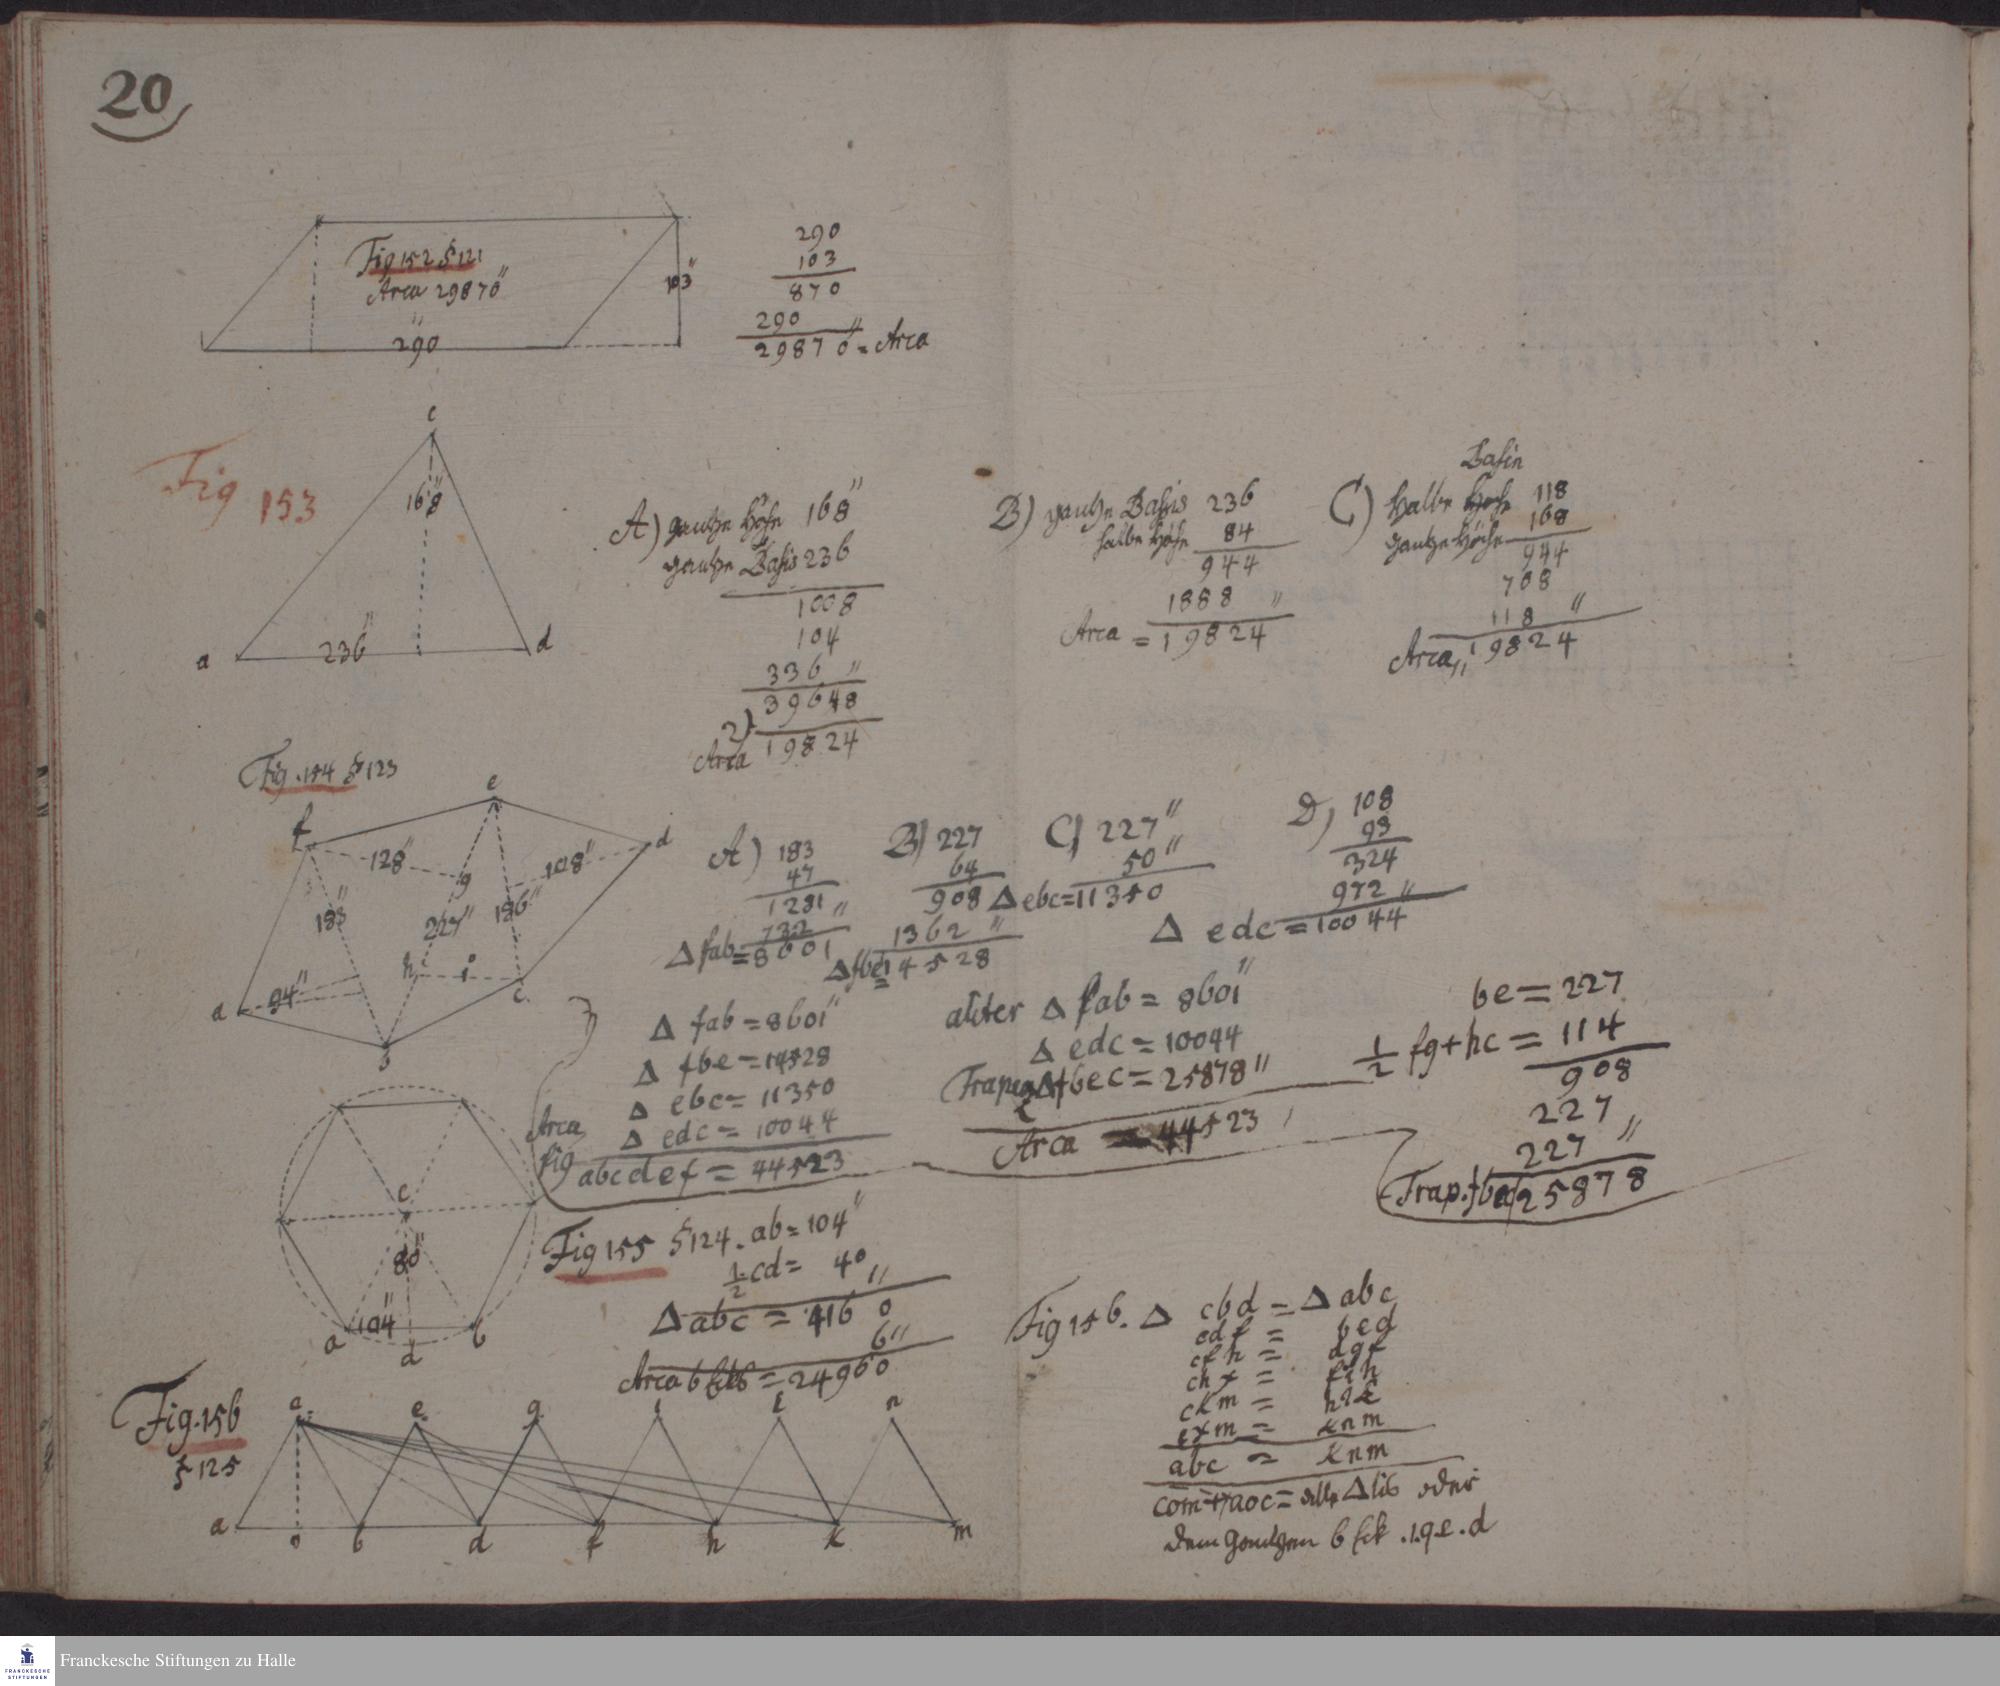 20
Fig 152 § 121
Area 29870''
290''
103''
290
103
870
290 ''
29870 = Area
Fig 153
c
168''
236''
a
d
A) gantze Höhe 168''
gantze Basis 236
1008
104
336 ''
39648
2)
Area 19824
B) gantze Basis 236
halbe Höhe 84
944
1888 ''
Area = 19824
Basin
C) Halbe Höhe 118
gantze Höhe 168
944
708
118 ''
Area,, 19824
Fig. 154 § 123
f
e
d
128''
g
108''
183''
227''
186''
h
i
c
a
94''
b
A) 183
47
1281 ''
732
Δ fab = 8601
B) 227
64
908
1362 ''
Δ fbe = 14528
C) 227''
50''
Δ ebc = 11350
D) 108
93
324
972 ''
Δ edc = 10044
Δ fab = 8601''
Δ fbe = 14528
Δ ebc = 11350
Δ edc = 10044
Area
fig
abcdef = 44523
aliter Δ fab = 8601''
Δ edc = 10044
Trapez fbec = 25878''
Area = 44523
be = 227
1/2 fg + hc = 114
908
227
227 ''
Trap. fbec 25878
c
80''
104''
a
d
b
Fig 155 § 124. ab = 104''
1/2 cd = 40 ''
Δ abc = 4160
6''
Area 6 = 24960
Fig. 156
§ 125
c
e
g
i
l
n
a
o
b
d
f
h
k
m
Fig 156. Δ cbd = Δ abc
cdf = bed
cfh = dgf
chk = fih
ckm = hlk
= knm
abc = knm
com + aoc = alle Δlis oder
dem gantzen 6 Eck . q.e.d